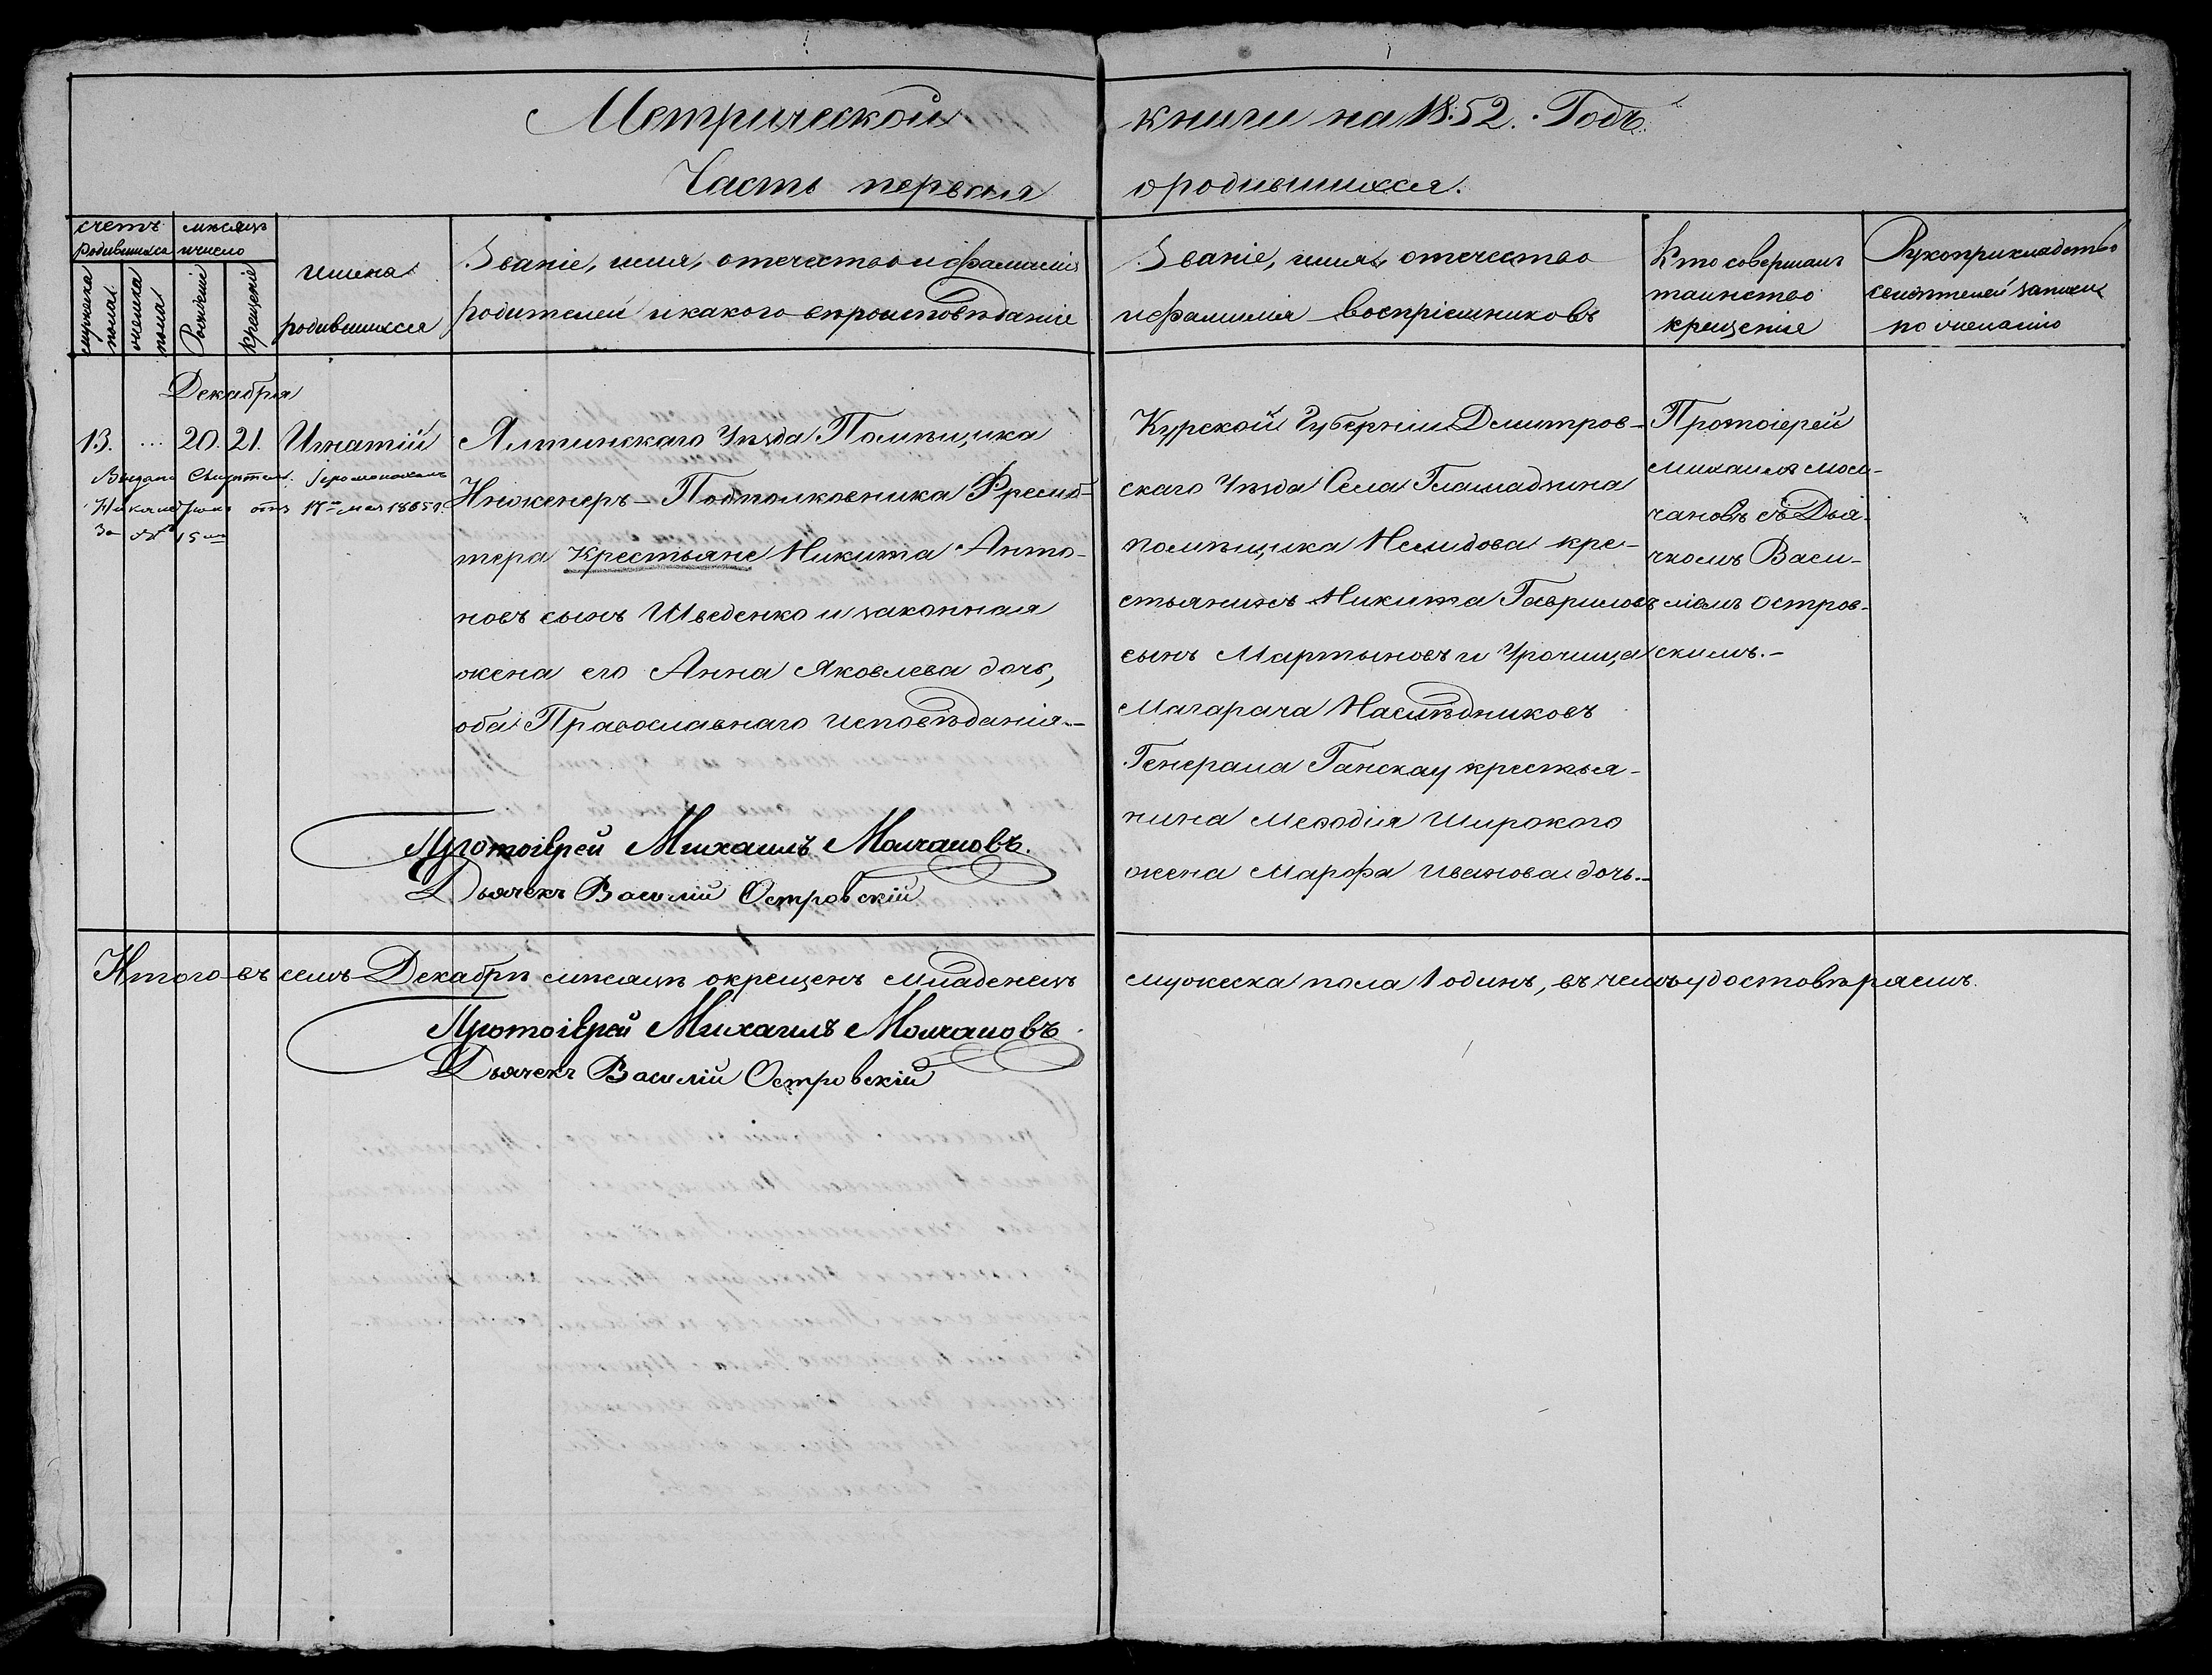 Метрической книги на 1852. Годъ.
Часть первая о родившихся.
счетъ родившихся
мѣсяцъ и число
мужеска пола
женска пола
Рожденіе
Крещеніе
имена родившихся
Званіе, имя, отечество и фамилія
родителей и какого вѣроисповѣданія
Званіе, имя, отечество
и фамилія воспріемниковъ
Кто совершалъ
таинство
крещенія
Рукоприкладство
свидѣтелей записи
по желанію
Декабря
13. ... 20. 21. Игнатій
Выдано Свидѣтел. Іеромонахомъ
отъ 17го мая 1865 г.
За № 15
Ялтинскаго Уѣзда Помѣщика
Инженеръ-Подполковника Фрешб-
тера Крестьяне Никита Анто-
новъ сынъ Шведенко и законная
жена его Анна Яковлева дочь,
оба Православнаго исповѣданія.-
Курской Губерніи Дмитров-
скаго Уѣзда Села Гламадзина
помѣщика Нелидова кре-
стьянинъ Никита Гавриловъ
сынъ Мартыновъ и Урочища
Магарача Наслѣдниковъ
Генерала Ганскау крестья-
нина Меѳодія Широкого
жена Марфа Иванова дочь.-
Протоіерей
Михаилъ Мол-
чановъ съ Дья-
чкомъ Васи-
ліемъ Остров-
скимъ.-
Протоіерей Михаилъ Молчановъ.
Дьячекъ Василій Островскій
Итого въ семъ Декабрѣ мѣсяцѣ окрещенъ младенецъ мужеска пола 1 одинъ, въ чемъ удостовѣряемъ.
Протоіерей Михаилъ Молчановъ.
Дьячекъ Василій Островскій